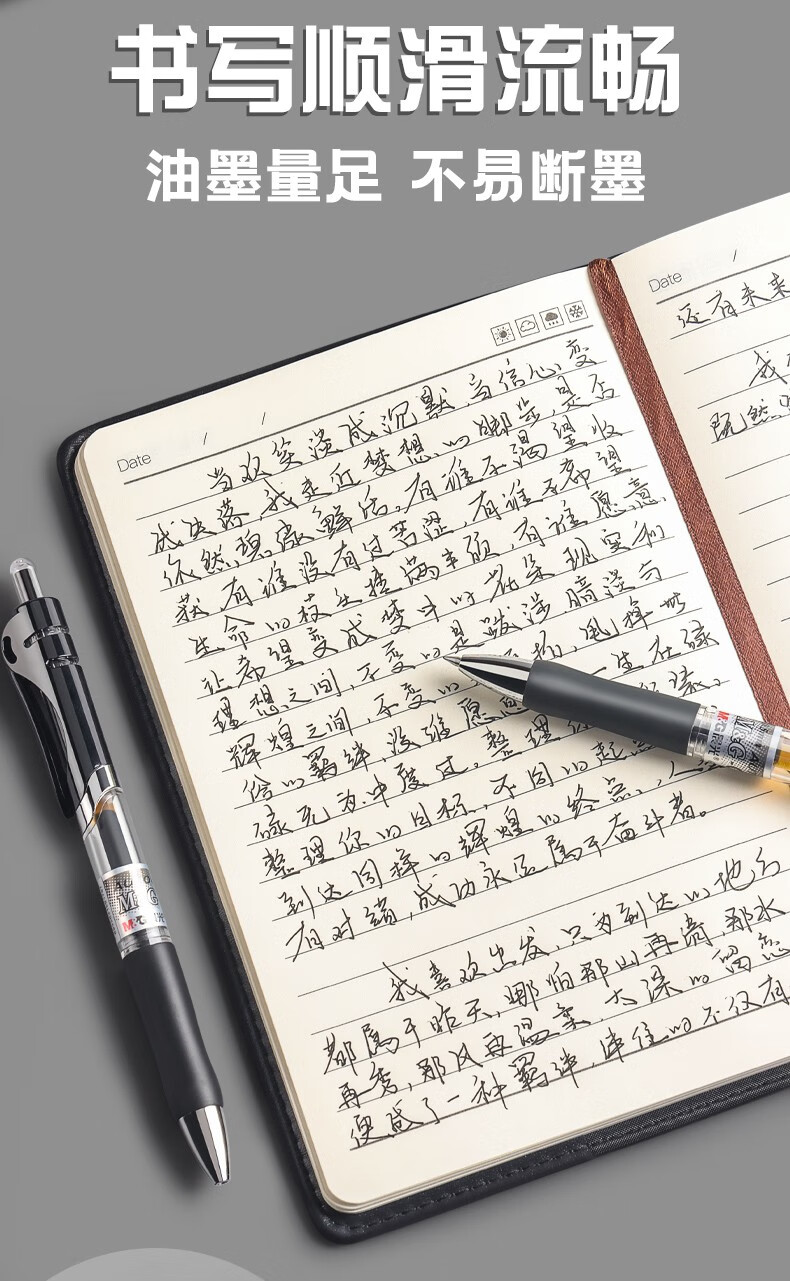 书写顺滑流畅
油墨量足 不易断墨
Date / /
当欢笑淡成沉默,当信心变
成失落,我走近梦想的脚步,是否
依然坚定
有谁不渴望收
获,有谁没有过苦涩,有谁不希望
生命的枝头挂满丰硕,有谁愿意
让希望变成梦中的花朵现实和
理想之间,不变的是跋涉,暗淡与
辉煌之间,不变的
给的羁绊,没谁愿意
一生在碌
碌无为中度过。整理你
整理你的目标,不同的起点
到达同样的辉煌的终点。人生
有对错,成功永远属于奋斗者。
我喜欢出发,只为到达的地方
都属于昨天,哪怕那山再清,那水
再秀,那风再温柔,太深的留恋
便成了一种羁绊,绊住的不仅有
Date /
还有未来
我
既然
M&G
M&G 晨光
M&G
M&G 晨光